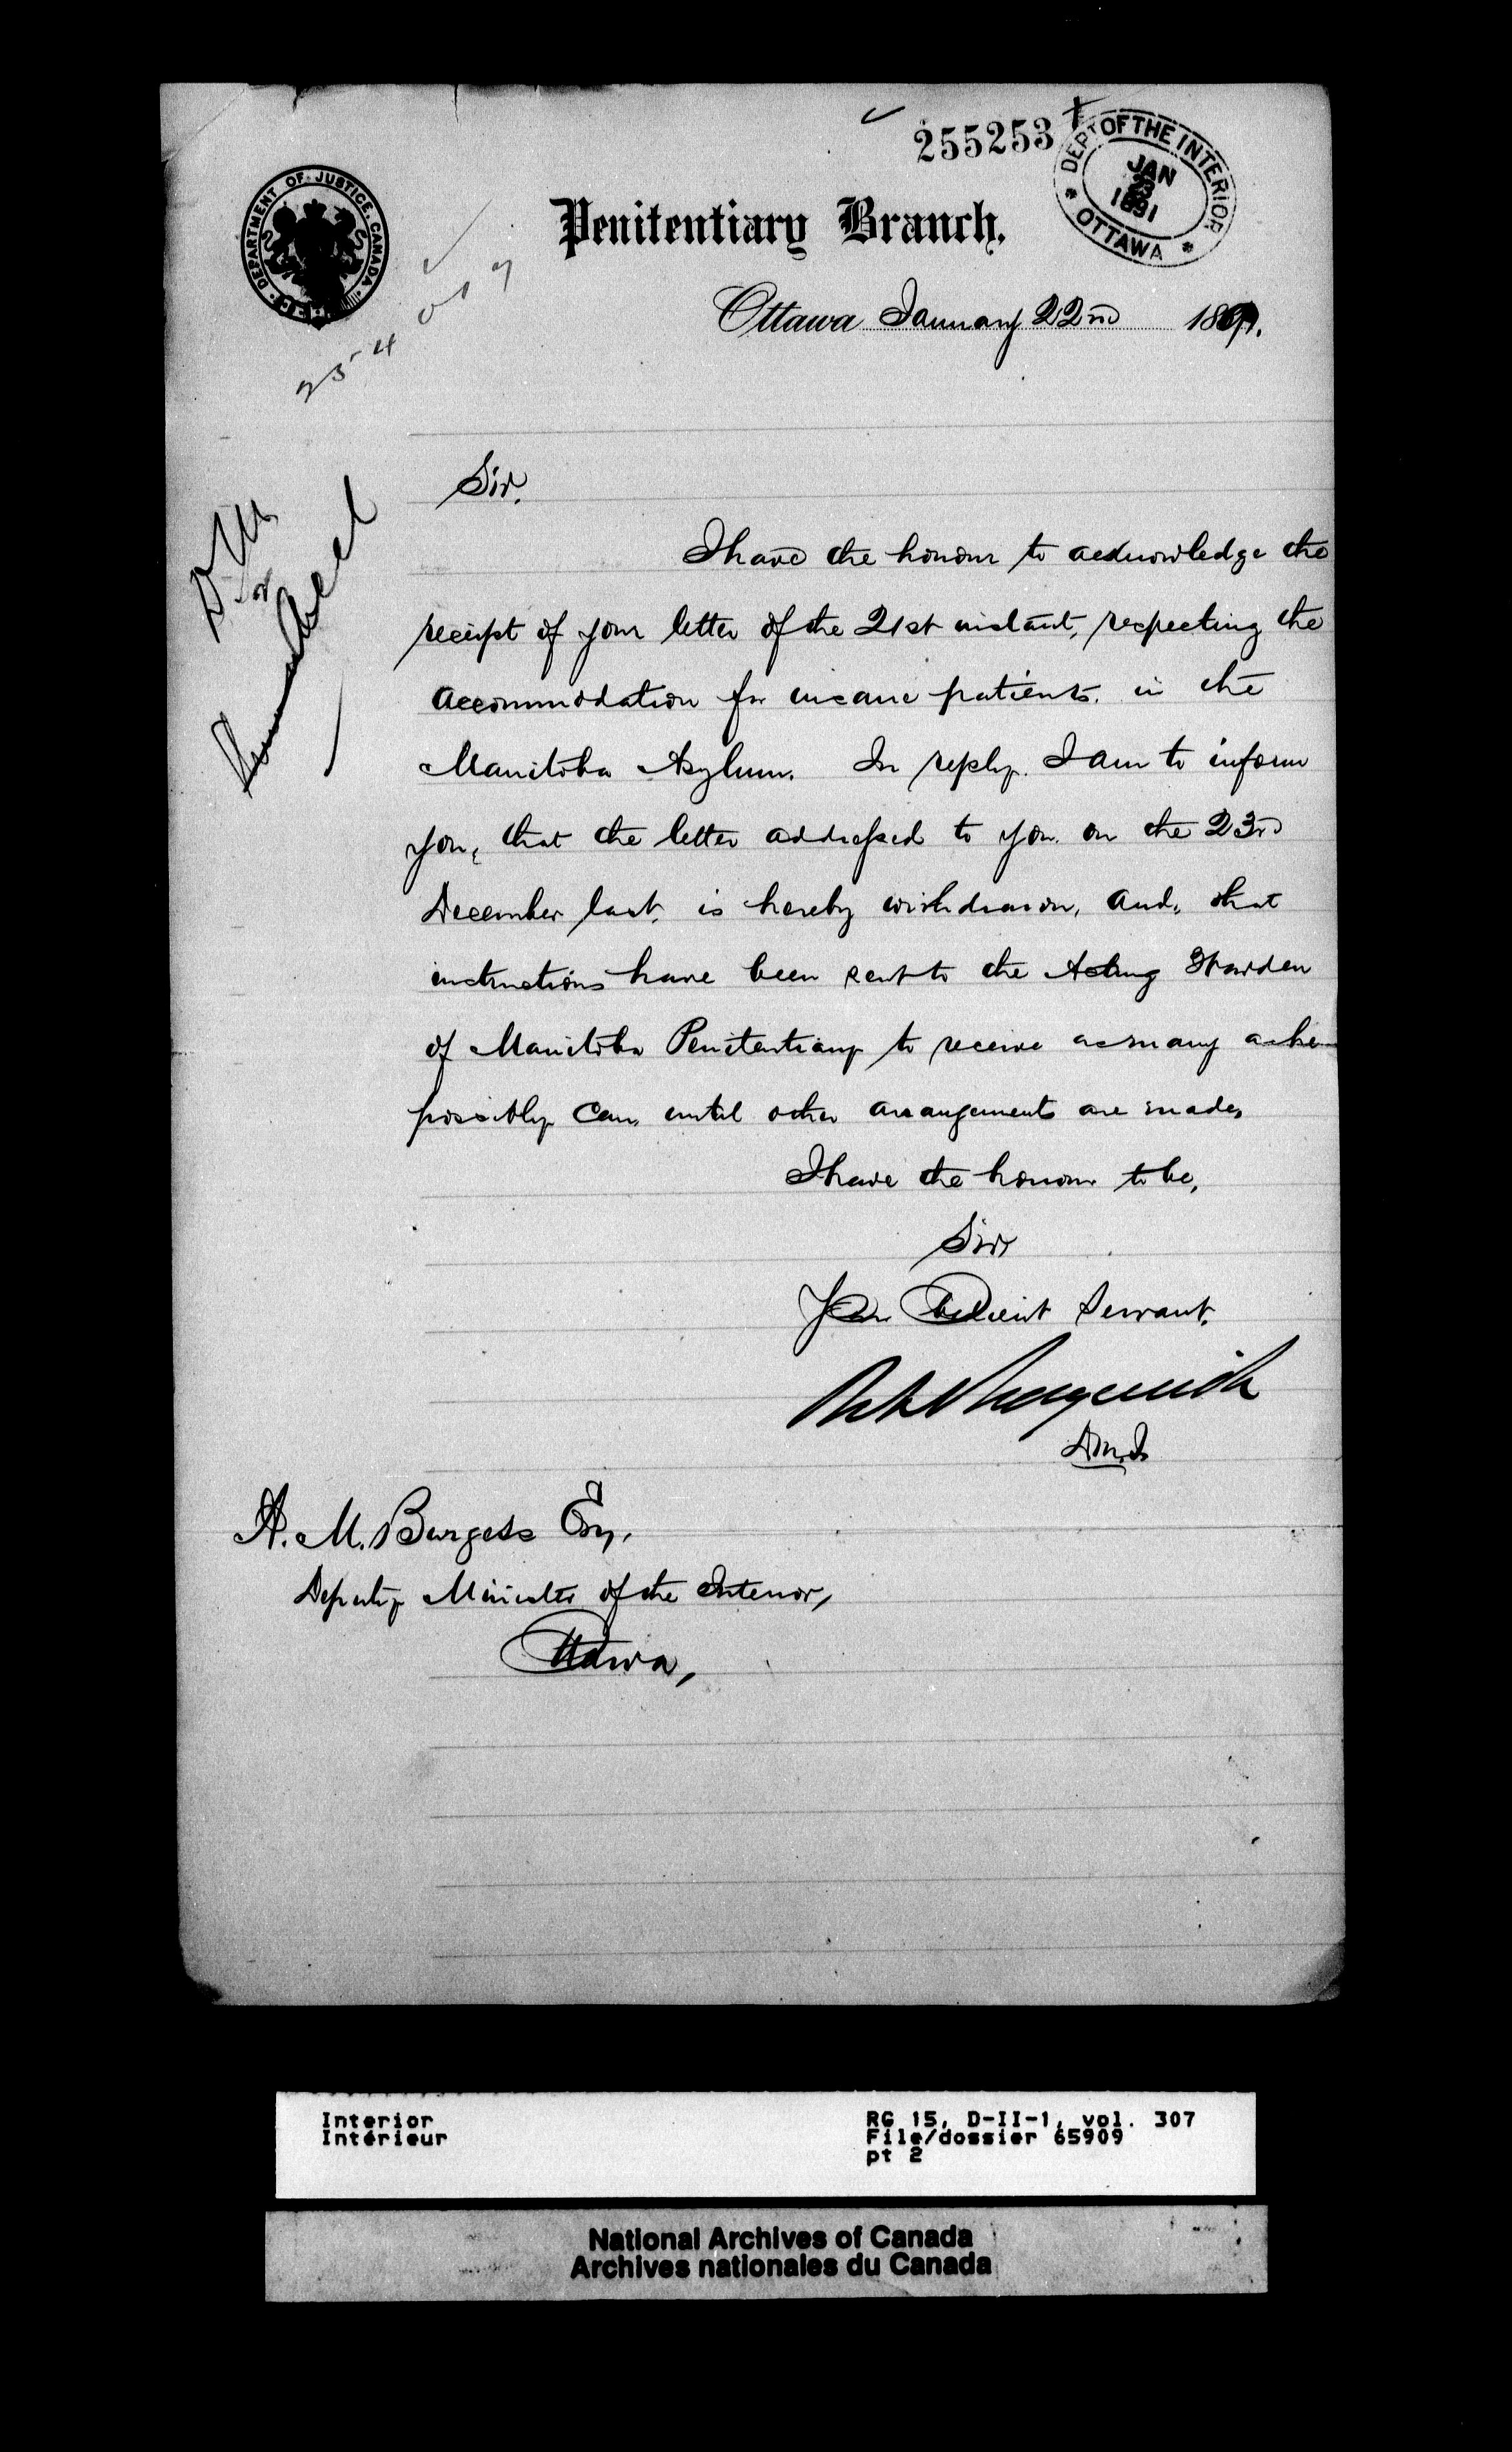 255253
DEPT OF THE INTERIOR
JAN
23
1891
OTTAWA
DEPARTMENT OF JUSTICE. CANADA
Penitentiary Branch.
Ottawa January 22nd 1891.
Sir,
I have the honour to acknowledge the
receipt of your letter of the 21st instant, respecting the
accommodation for insane patients in the
Manitoba Asylum. In reply I am to inform
you, that the letter addressed to you on the 23rd
December last, is hereby withdrawn, and, that
instructions have been sent to the Acting Warden
of Manitoba Penitentiary to receive as many as he
possibly can, until other arrangements are made,
I have the honour to be,
Sir,
Your Obedient Servant,
A. M. Burgess Esq,
Deputy Minister of the Interior,
Ottawa,
Interior
Intérieur
RG 15, D-II-1, vol. 307
File/dossier 65909
pt 2
National Archives of Canada
Archives nationales du Canada